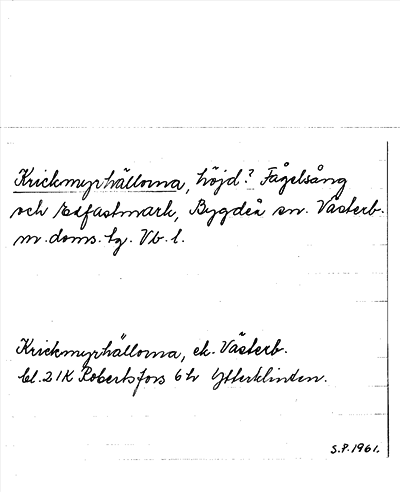 Krickmyrhällorna, höjd? Fågelsång
och Edfastmark, Bygdeå sn. Västerb.
m. doms. tg. Vb. l.
Krickmyrhällorna, ek. Västerb.
bl. 21K Robertsfors 6h Ytterklinten.
S.P. 1961.